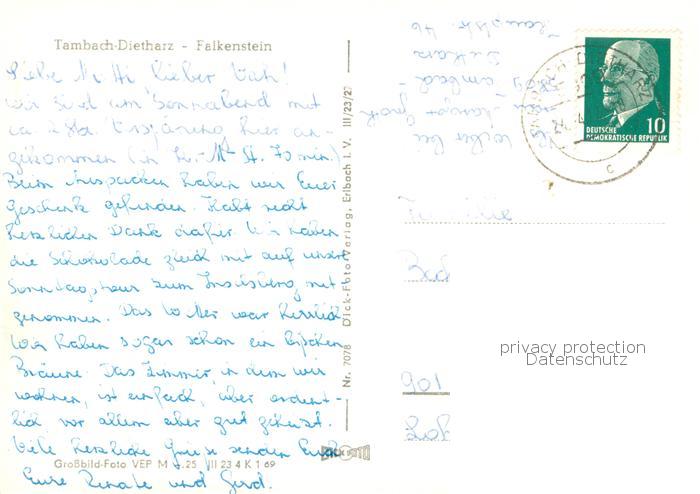 Tambach-Dietharz - Falkenstein
Liebe Mutti, lieber Väti!
wir sind am Sonnabend mit
ca. 2 Std. Verspätung hier an-
gekommen (in K.-M.-St. 70 min.)
Beim Auspacken haben wir Euer
Geschenk gefunden. Habt recht
herzlichen Dank dafür. Wir haben
die Schokolade gleich mit auf unsere
Sonntagstour zum Inselsberg mit-
genommen. Das Wetter war herrlich.
Wir haben sogar schon ein bißchen
Bräune. Das Zimmer, in dem wir
wohnen, ist einfach, aber ordent-
lich, vor allem aber gut geheizt.
Viele herzliche Grüße senden Euch
Eure Renate und Gerd.
Großbild-Foto VEP M 25 III 23 4 K 1 69
Nr. 7078 Dick-Foto-Verlag, Erlbach i. V. III/23/27
DICK FOTO
Hauptstr. 46
Dietharz
Tambach-
bei
TAMBACH-DIETHARZ
c
10
DEUTSCHE
DEMOKRATISCHE REPUBLIK
Bad
901
privacy protection
Datenschutz